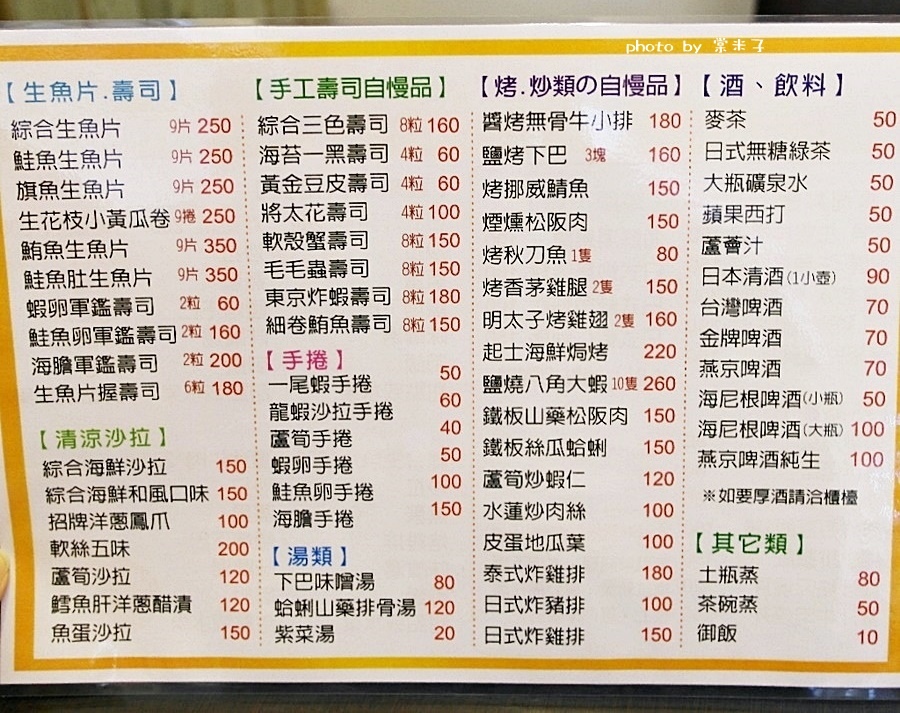 photo by 棠米子
【生魚片.壽司】
綜合生魚片 9片 250
鮭魚生魚片 9片 250
旗魚生魚片 9片 250
生花枝小黃瓜卷 9捲 250
鮪魚生魚片 9片 350
鮭魚肚生魚片 9片 350
蝦卵軍鑑壽司 2粒 60
鮭魚卵軍鑑壽司 2粒 160
海膽軍鑑壽司 2粒 200
生魚片握壽司 6粒 180
【清涼沙拉】
綜合海鮮沙拉 150
綜合海鮮和風口味 150
招牌洋蔥鳳爪 100
軟絲五味 200
蘆筍沙拉 120
鱈魚肝洋蔥醋漬 120
魚蛋沙拉 150
【手工壽司自慢品】
綜合三色壽司 8粒 160
海苔一黑壽司 4粒 60
黃金豆皮壽司 4粒 60
將太花壽司 4粒 100
軟殼蟹壽司 8粒 150
毛毛蟲壽司 8粒 150
東京炸蝦壽司 8粒 180
細卷鮪魚壽司 8粒 150
【手捲】
一尾蝦手捲 50
龍蝦沙拉手捲 60
蘆筍手捲 40
蝦卵手捲 50
鮭魚卵手捲 100
海膽手捲 150
【湯類】
下巴味噌湯 80
蛤蜊山藥排骨湯 120
紫菜湯 20
【烤.炒類の自慢品】
醬烤無骨牛小排 180
鹽烤下巴 3塊 160
烤挪威鯖魚 150
煙燻松阪肉 150
烤秋刀魚 1隻 80
烤香茅雞腿 2隻 150
明太子烤雞翅 2隻 160
起士海鮮焗烤 220
鹽燒八角大蝦 10隻 260
鐵板山藥松阪肉 150
鐵板絲瓜蛤蜊 150
蘆筍炒蝦仁 120
水蓮炒肉絲 100
皮蛋地瓜葉 100
泰式炸雞排 180
日式炸豬排 100
日式炸雞排 150
【酒、飲料】
麥茶 50
日式無糖綠茶 50
大瓶礦泉水 50
蘋果西打 50
蘆薈汁 50
日本清酒(1小壺) 90
台灣啤酒 70
金牌啤酒 70
燕京啤酒 70
海尼根啤酒(小瓶) 50
海尼根啤酒(大瓶) 100
燕京啤酒純生 100
※如要厚酒請洽櫃檯
【其它類】
土瓶蒸 80
茶碗蒸 50
御飯 10